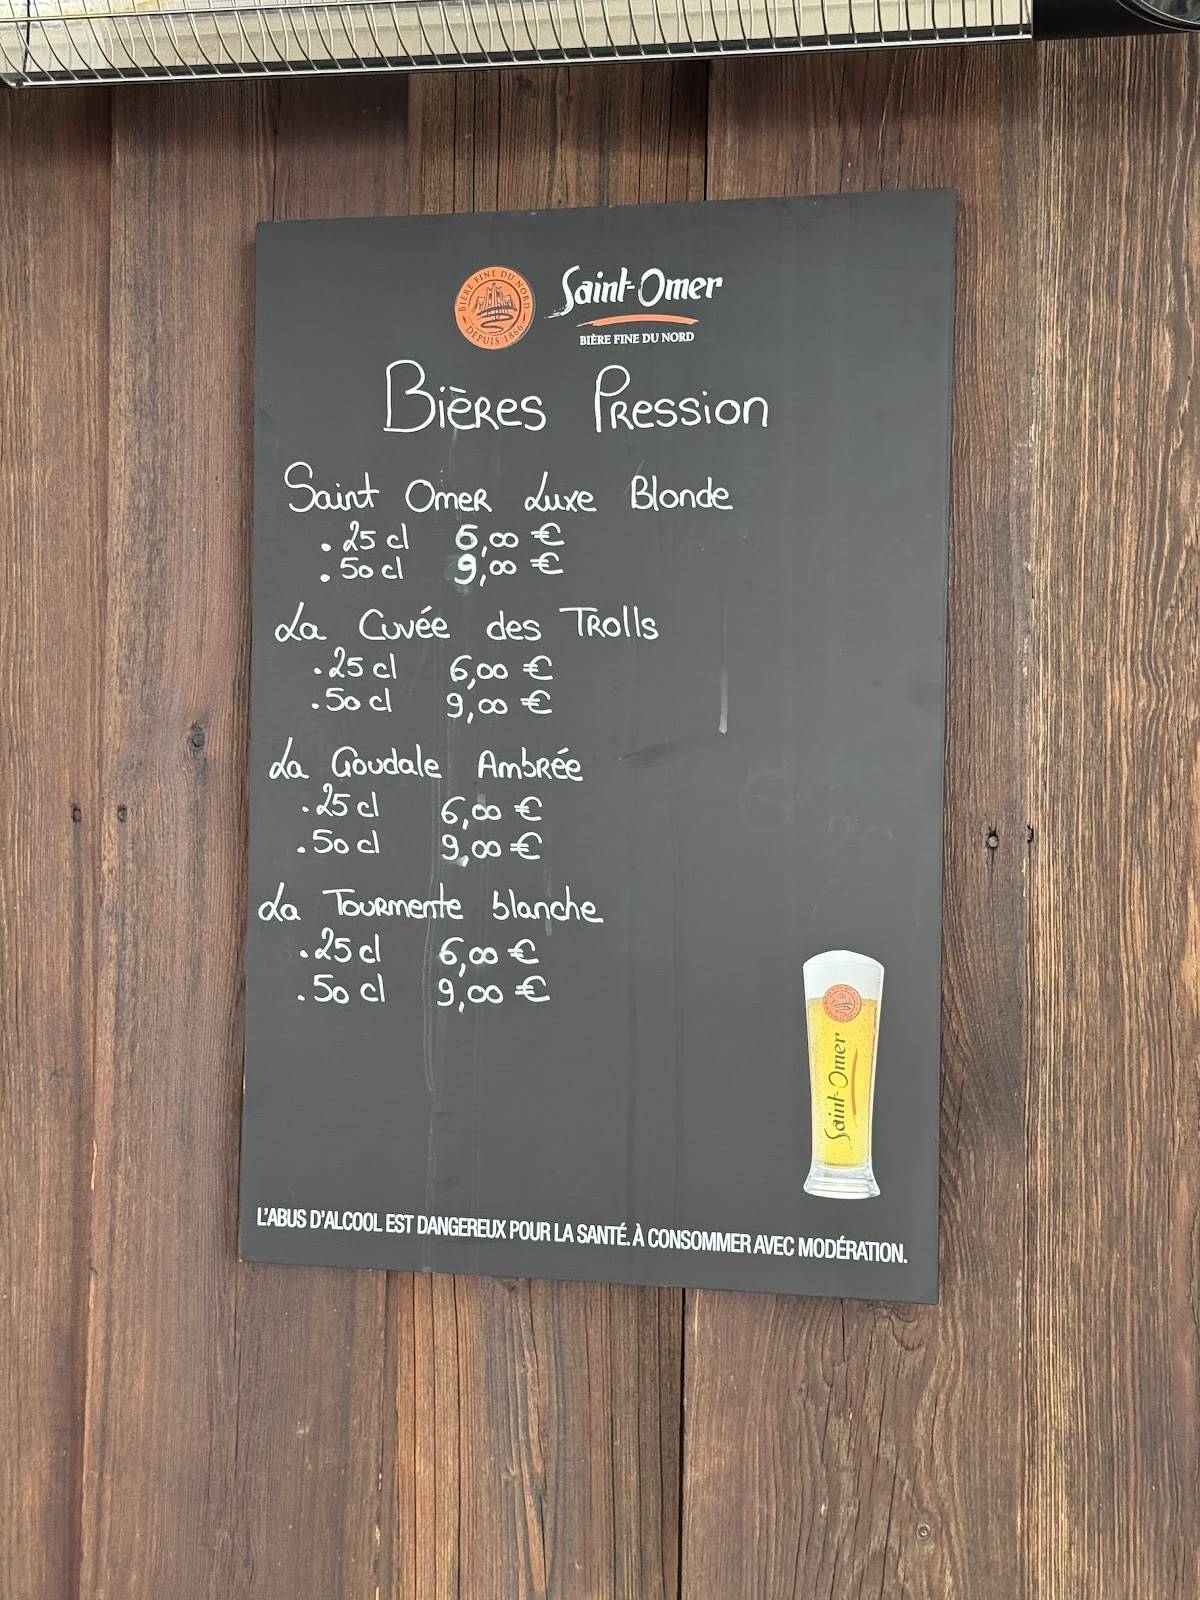 BIÈRE FINE DU NORD
DEPUIS 1866
Saint-Omer
BIÈRE FINE DU NORD
Bières Pression
Saint Omer Luxe Blonde
. 25 cl 6,00 €
. 50 cl 9,00 €
La Cuvée des Trolls
. 25 cl 6,00 €
. 50 cl 9,00 €
La Goudale Ambrée
. 25 cl 6,00 €
. 50 cl 9,00 €
La Tourmente blanche
. 25 cl 6,00 €
. 50 cl 9,00 €
Saint-Omer
L'ABUS D'ALCOOL EST DANGEREUX POUR LA SANTÉ. À CONSOMMER AVEC MODÉRATION.